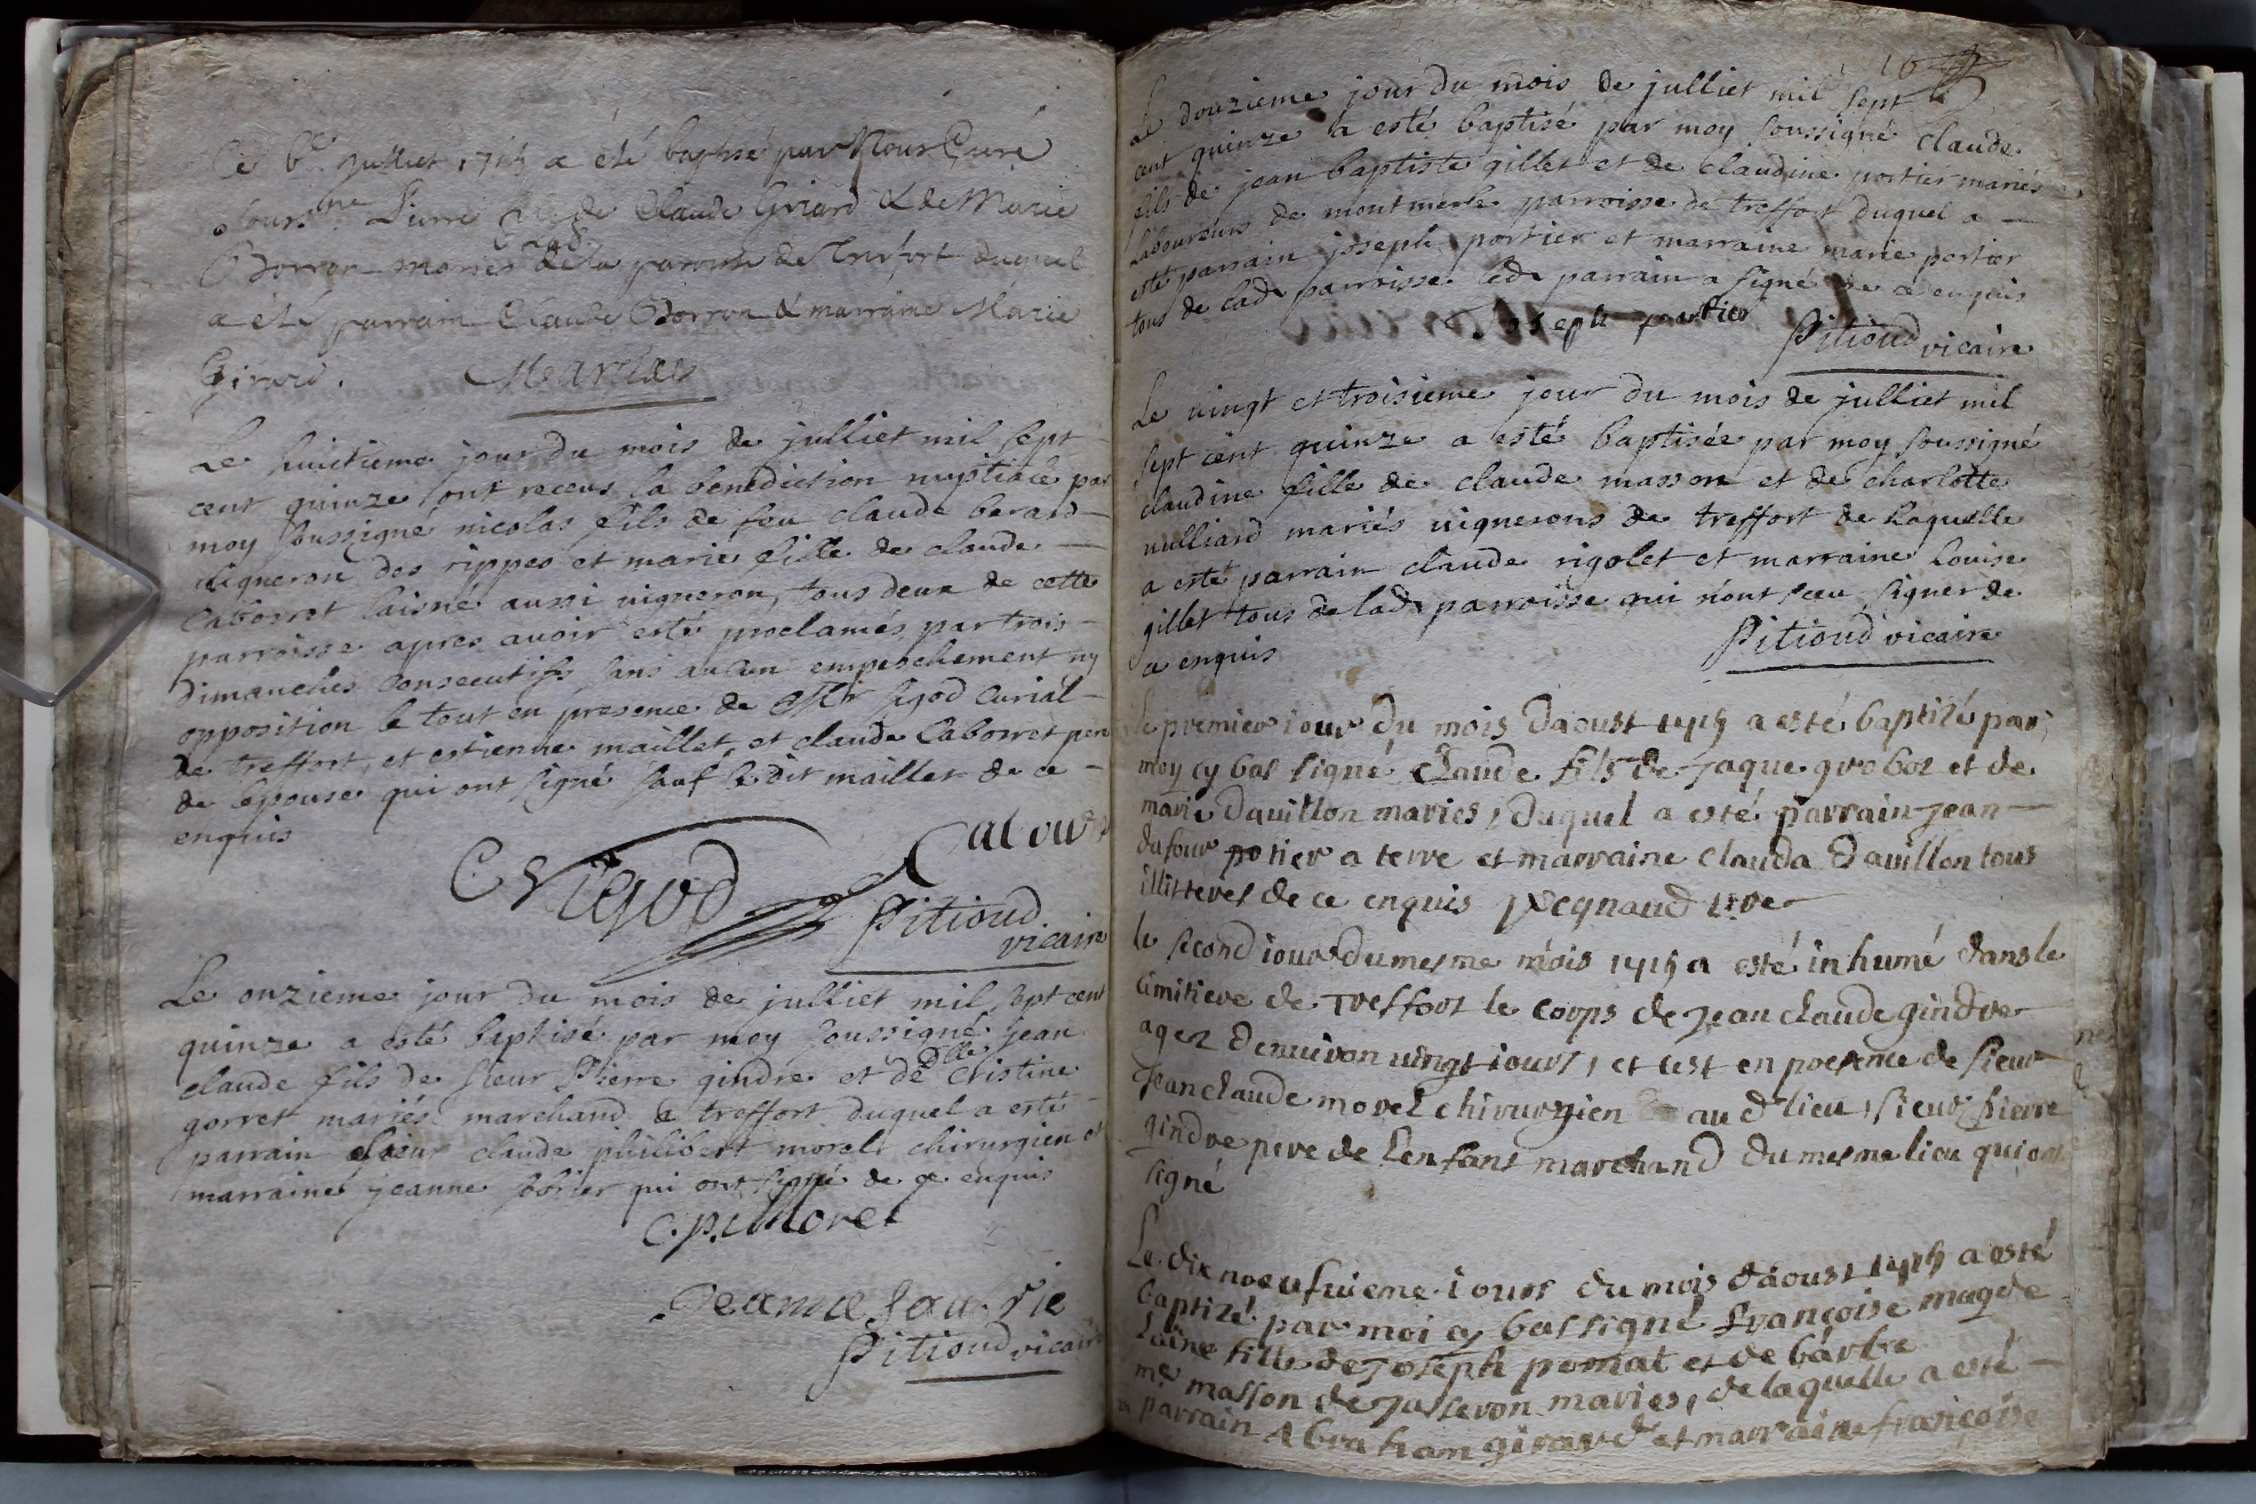 Ce 6e Julliet 1715 a été baptisé par Nous Curé
soursne Pierre fils de Claude Girard & de Marie
Borron mariés de la paroisse de Treffort duquel
a été parrain Claude Borron & marraine Marie
Girard.
Le huitieme jour du mois de julliet mil sept
cent quinze ont receus la benediction nuptiale par
moy soussigné nicolas fils de feu claude berard
vigneron des rippes et marie fille de claude
Cabosret laisné aussi vigneron, tous deux de cette
parroisse apres avoir esté proclamés par trois
dimanches consecutifs sans aucun empeschement ny
opposition le tout en presence de Mr sigod curial
de treffort, et estienne maillet, et claude Cabosret pere
de l'epouse qui ont signé sauf le dit maillet de ce
enquis
C Sigod
Pitioud
vicaire
Le onzieme jour du mois de julliet mil sept cent
quinze a esté baptisé par moy soussigné jean
claude fils de sieur Pierre gindre et de dlle cristine
gorret mariés marchand a treffort duquel a esté
parrain sieur claude philibert morel chirurgien et
marraine jeanne qui ont signé de ce enquis
C. p. Morel
Jeanne
Pitioud vicaire
16
Le douzieme jour du mois de julliet mil sept
cent quinze a esté baptisé par moy soussigné claude
fils de jean baptiste gillet et de claudine portier mariés
laboureurs de montmerle parroisse de treffort duquel a
esté parrain joseph portier et marraine marie portier
tous de lade parroisse led parrain a signé de ce enquis
Joseph portier
Pitioud vicaire
Le vingt et troisieme jour du mois de julliet mil
sept cent quinze a esté baptisée par moy soussigné
claudine fille de claude masson et de charlotte
nulliard mariés vignerons de treffort de laquelle
a esté parrain claude rigolet et marraine Louise
gillet tous de lade parroisse qui n'ont sceu signer de
ce enquis
Pitioud vicaire
le premier iour du mois daoust 1715 a esté baptizé par
moy cy bas signé Claude fils de Jaque grobos et de
marie Davillon maries, duquel a esté parrain jean
dufour potier a terre et marraine clauda Davillon tous
illitteres de ce enquis pecgnaud ptre
le second iour du mesme mois 1715 a esté inhumé dans le
cimitiere de Treffort le corps de Jean claude gindre
agez denviron vingt iours, et cest en presence de sieur
Jean claude morel chirurgien au d lieu, sieur pierre
gindre pere de l'enfant marchand du mesme lieu qui ont
signé
Le dix noeufuieme iour du mois daoust 1715 a esté
baptizé par moi cy bas signé françoise magde
laine fille de Joseph pomat et de barbe
masson de Jasseron maries, de laquelle a esté
parrain Abraham girard et marraine françoise